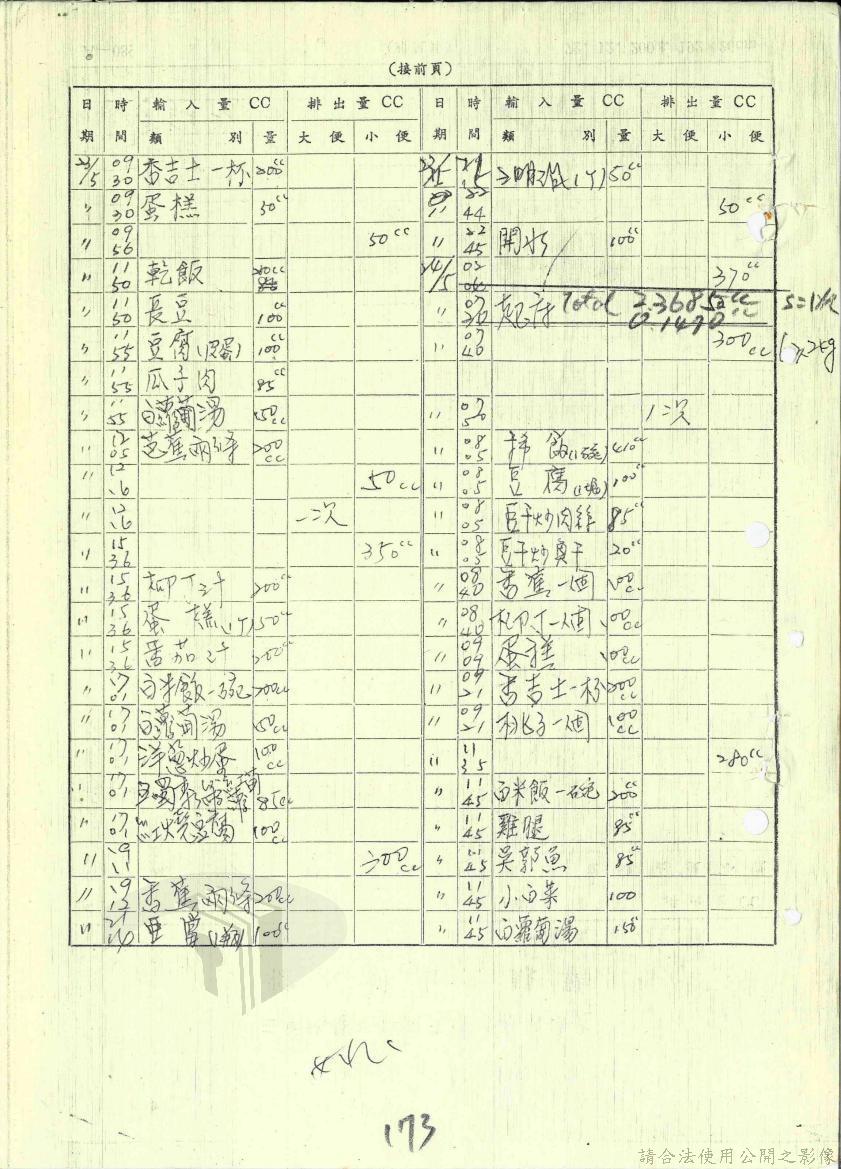 (接前頁)
日期 時間 輸入量CC 類別 量 排出量CC 大便 小便
23/5 09 30 香吉士一杯 200cc
〃 09 30 蛋糕 50cc
〃 09 56 50cc
〃 11 50 乾飯 200cc
〃 11 50 長豆 100cc
〃 11 55 豆腐 100cc
〃 11 55 瓜子肉 85cc
〃 11 55 白蘿蔔湯 150cc
〃 12 05 芭蕉兩條 200cc
〃 12 16 50cc
〃 12 16 一次
〃 15 36 350cc
〃 15 36 柳丁汁 200cc
〃 15 36 蛋糕(1個) 50cc
〃 15 36 番茄汁 200cc
〃 17 01 白米飯一碗 200cc
〃 17 01 白蘿蔔湯 150cc
〃 17 01 洋蔥炒蛋 100cc
〃 17 01 85cc
〃 17 01 紅燒豆腐 100cc
〃 19 11 300cc
〃 19 12 香蕉兩條 200cc
〃 21 100cc
日期 時間 輸入量CC 類別 量 排出量CC 大便 小便
23/5 三明治(1個) 50cc
〃 22 44 50cc
〃 22 45 開水 100cc
24/5 370cc
〃 07 30 起床 Total I 2,3685cc S=1次
O 1470cc
〃 07 40 300cc
〃 07 50 1次
〃 08 05 稀飯(1碗) 410cc
〃 08 05 豆腐(1塊) 100cc
〃 08 05 豆干炒肉絲 85cc
〃 08 05 豆干炒魚干 20cc
〃 08 40 香蕉一個 100cc
〃 08 40 柳丁一個 100cc
〃 09 09 蛋糕 100cc
〃 09 21 香吉士一杯 200cc
〃 09 21 桃子一個 100cc
〃 11 35 280cc
〃 11 45 白米飯一碗 200cc
〃 11 45 雞腿 85cc
〃 11 45 吳郭魚 85cc
〃 11 45 小白菜 100
〃 11 45 白蘿蔔湯 150cc
173
請合法使用公開之影像